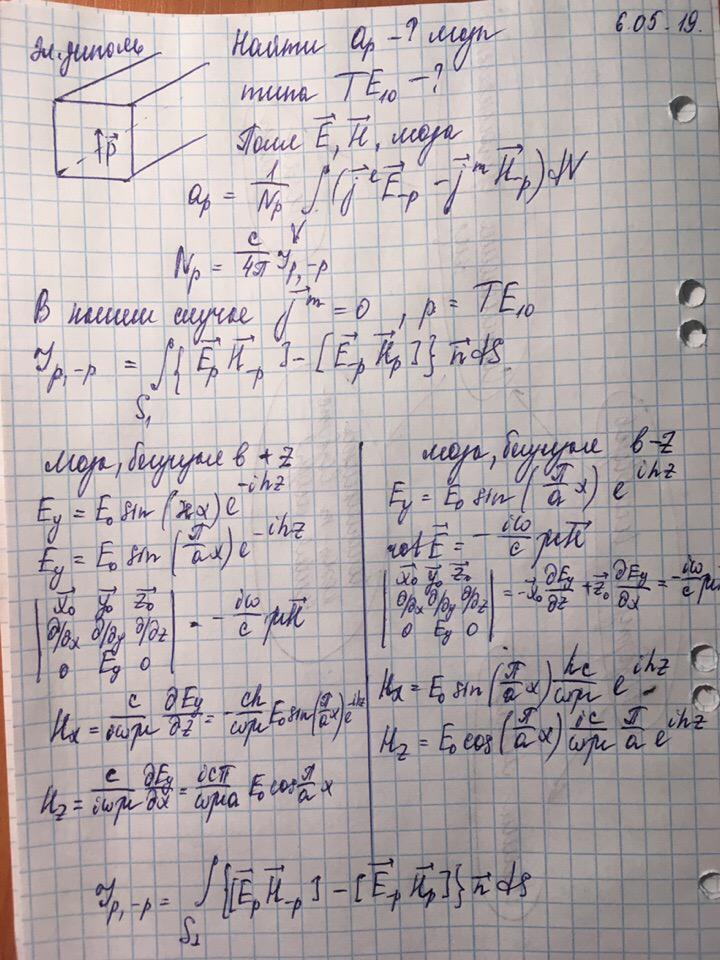 6.05.19.
Эл. диполь
Найти a_p -? моды
типа TE_10 -?
p⃗
Поля E⃗, H⃗, мода
a_p = 1/N_p ∫_V (j⃗^e E⃗_-p - j⃗^m H⃗_-p) dV
N_p = c/4π 𝒥_p,-p
В нашем случае j⃗^m = 0, p = TE_10
𝒥_p,-p = ∫_S₁ {E⃗_p H⃗_-p] - [E⃗_-p H⃗_p]} n⃗ dS
мода, бегущая в +z
E_y = E_0 sin(ϰx) e^-ihz
E_y = E_0 sin(π/a x) e^-ihz
| x⃗_0 y⃗_0 z⃗_0 |
| ∂/∂x ∂/∂y ∂/∂z | = - iω/c μH⃗
| 0 E_y 0 |
H_x = c/iωμ ∂E_y/∂z = - ch/ωμ E_0 sin(π/a x) e^ihz
H_z = c/iωμ ∂E_y/∂x = icπ/ωμa E_0 cos π/a x
мода, бегущая в -z
E_y = E_0 sin(π/a x) e^ihz
rot E⃗ = - iω/c μH⃗
| x⃗_0 y⃗_0 z⃗_0 |
| ∂/∂x ∂/∂y ∂/∂z | = -x⃗_0 ∂E_y/∂z + z⃗_0 ∂E_y/∂x = - iω/c μ
| 0 E_y 0 |
H_x = E_0 sin(π/a x) hc/ωμ e^ihz
H_z = E_0 cos(π/a x) ic/ωμ π/a e^ihz
𝒥_p,-p = ∫_S₁ {[E⃗_p H⃗_-p] - [E⃗_-p H⃗_p]} n⃗ dS